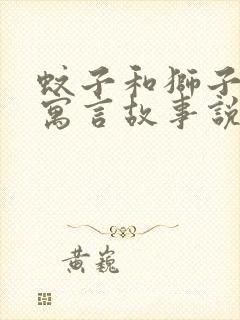 蚊子和獅子
寓言故事說
黃巍